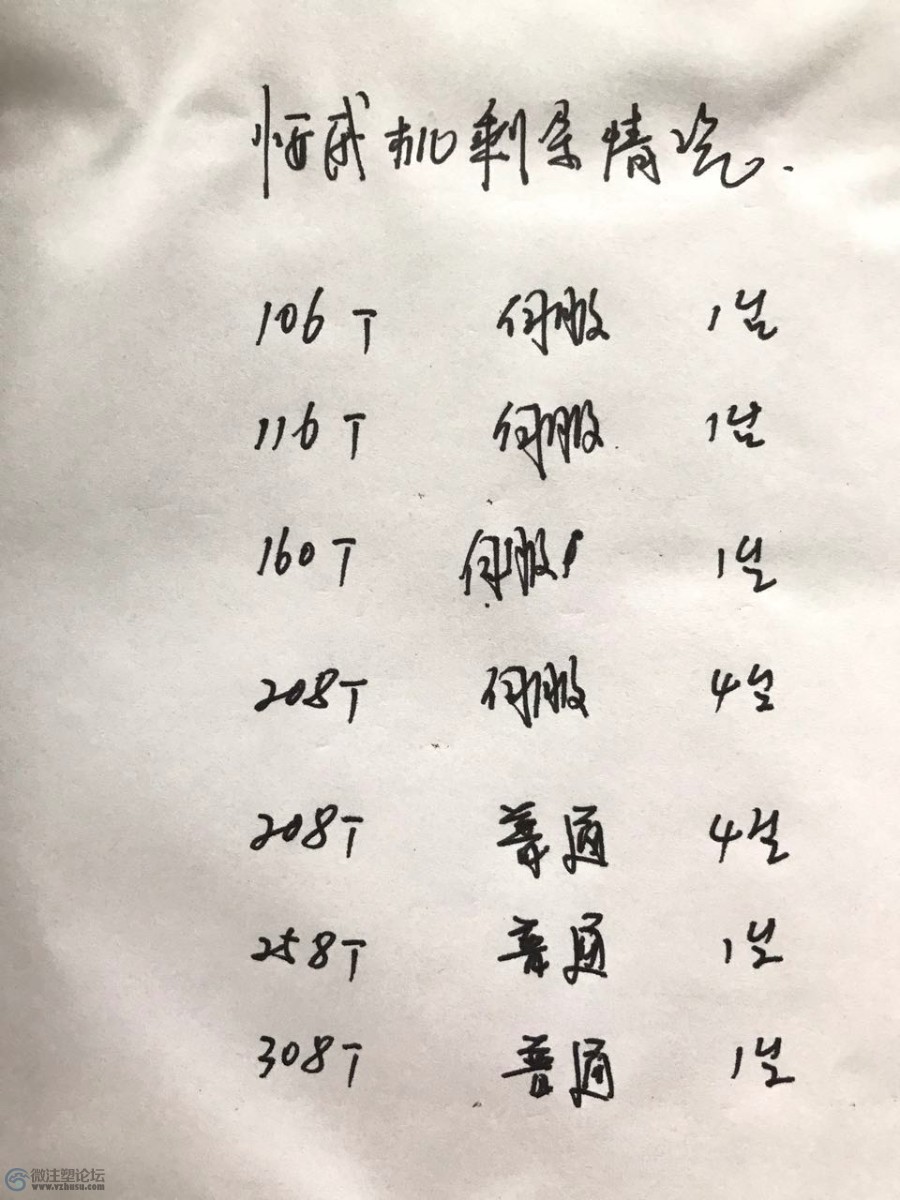 恒威机剩余情况.
106T 伺服 1台
116T 伺服 1台
160T 伺服 1台
208T 伺服 4台
208T 普通 4台
258T 普通 1台
308T 普通 1台
微注塑论坛
www.vzhusu.com